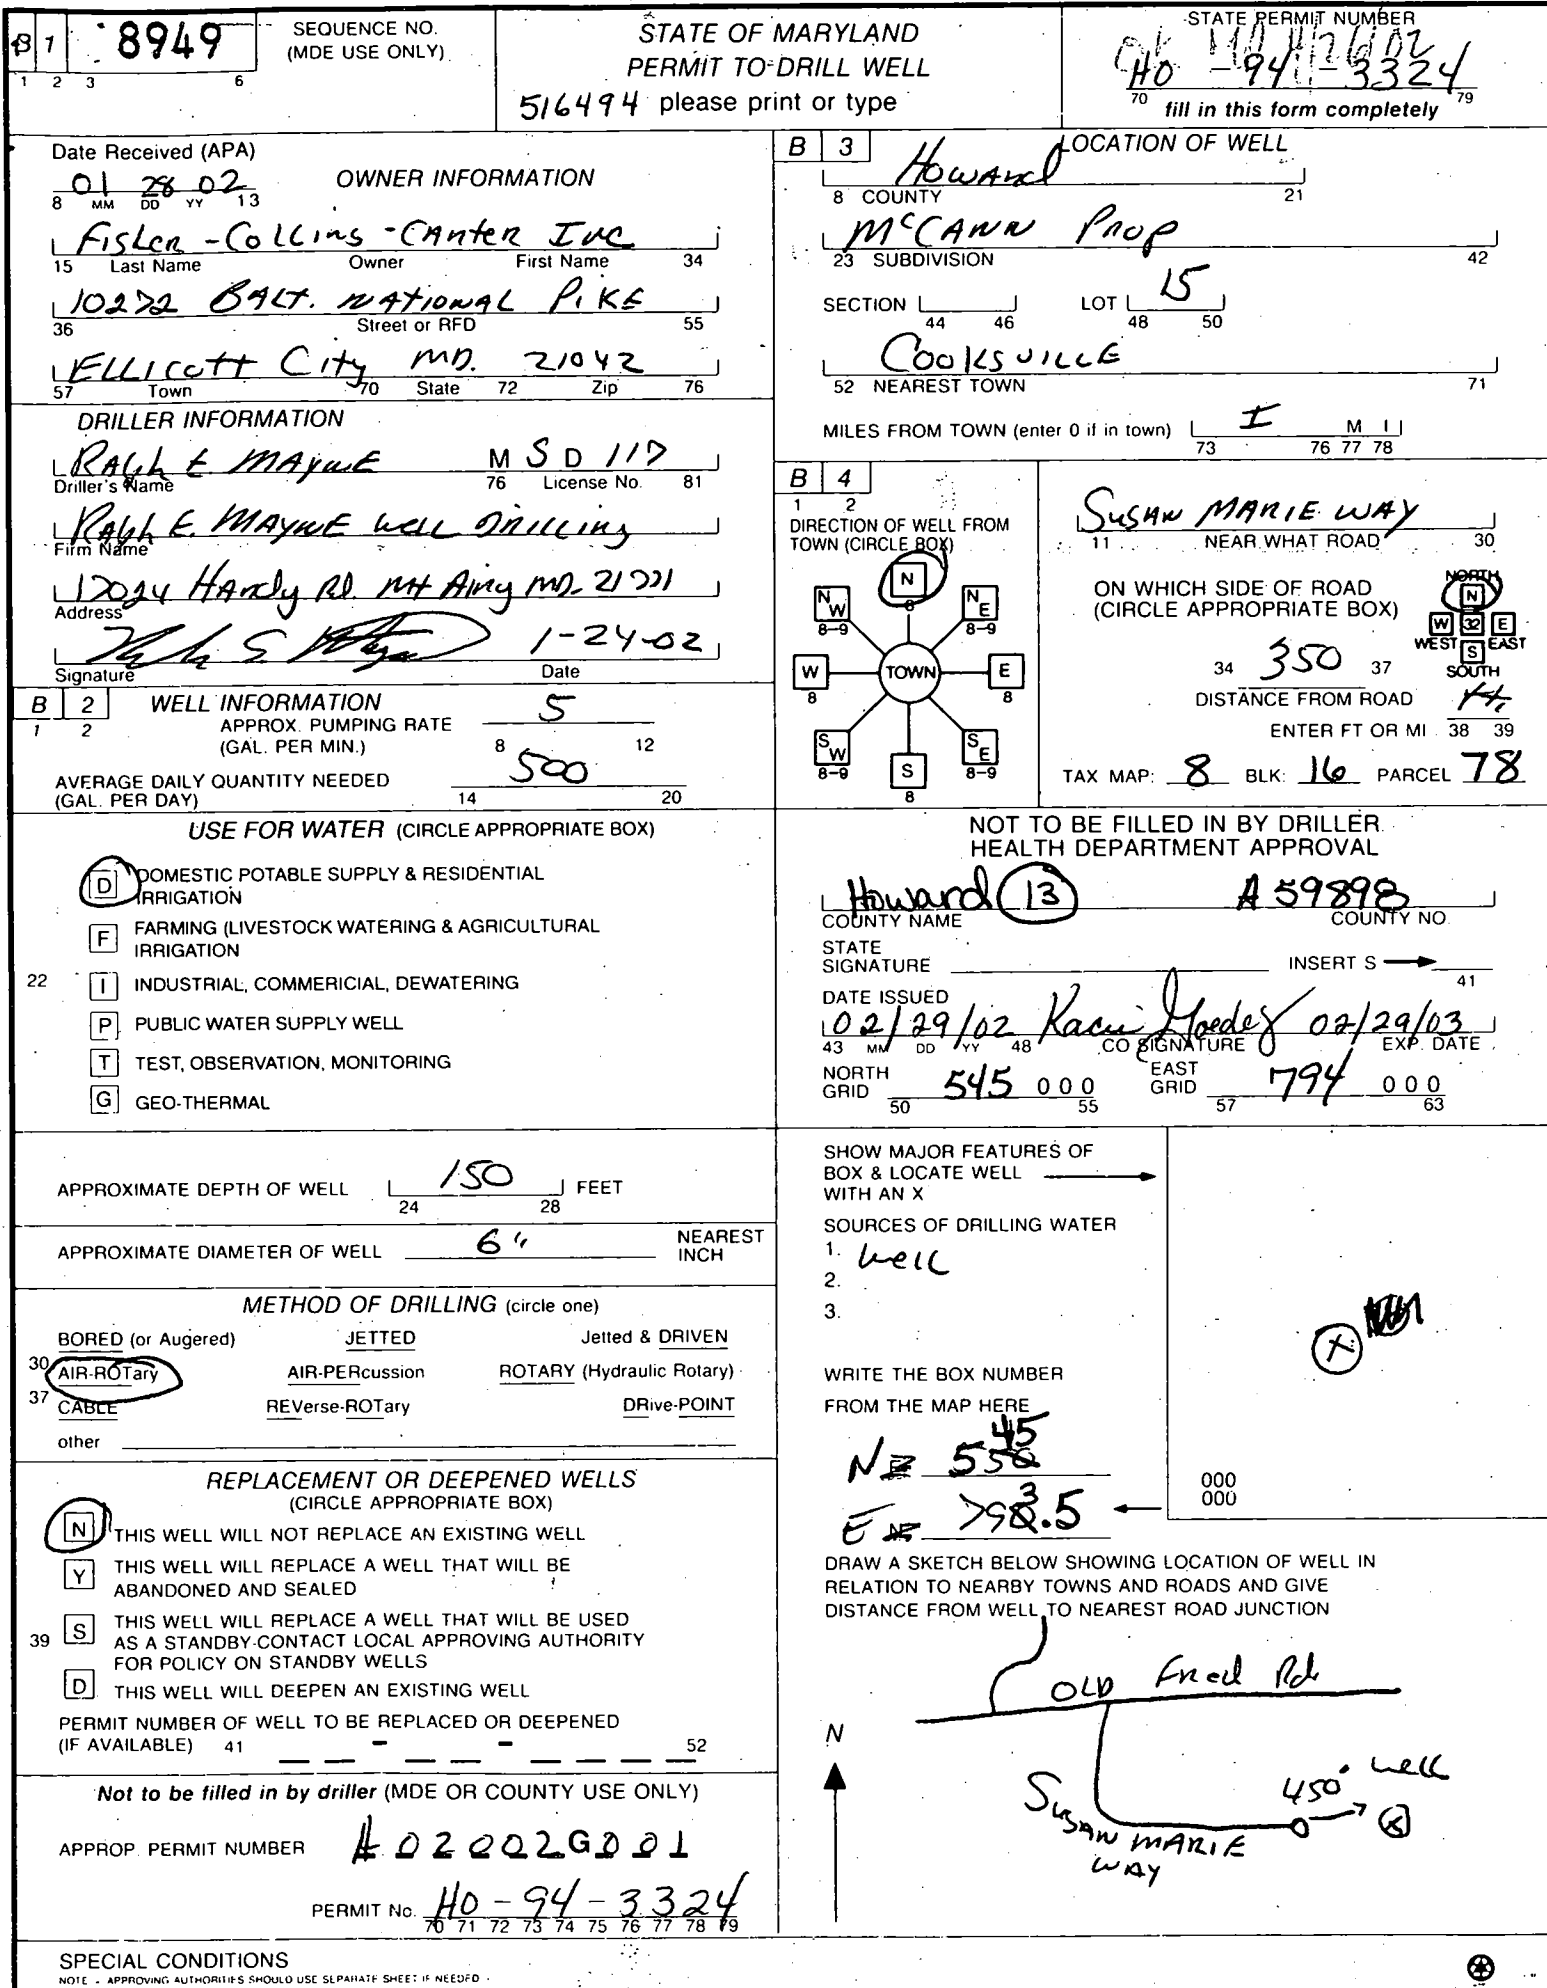 B 1 8949 SEQUENCE NO. (MDE USE ONLY)
1 2 3 6
STATE OF MARYLAND
PERMIT TO DRILL WELL
516494 please print or type
STATE PERMIT NUMBER
HO - 94 - 3324
70 79
fill in this form completely
Date Received (APA)
01 28 02
8 MM DD YY 13
OWNER INFORMATION
Fisher-Collins-Canter Inc
15 Last Name Owner First Name 34
10272 BALT. NATIONAL PIKE
36 Street or RFD 55
ELLICOTT City MD. 21042
57 Town 70 State 72 Zip 76
DRILLER INFORMATION
RALph E. MAYNE M S D 117
Driller's Name 76 License No. 81
RALph E. MAYNE WELL DRILLING
Firm Name
17024 HArdy Rd. Mt Airy MD. 21771
Address
1-24-02
Signature Date
B 2 WELL INFORMATION
1 2
APPROX. PUMPING RATE 5
(GAL. PER MIN.) 8 12
AVERAGE DAILY QUANTITY NEEDED 500
(GAL. PER DAY) 14 20
USE FOR WATER (CIRCLE APPROPRIATE BOX)
D DOMESTIC POTABLE SUPPLY & RESIDENTIAL
IRRIGATION
F FARMING (LIVESTOCK WATERING & AGRICULTURAL
IRRIGATION
22 I INDUSTRIAL, COMMERICIAL, DEWATERING
P PUBLIC WATER SUPPLY WELL
T TEST, OBSERVATION, MONITORING
G GEO-THERMAL
APPROXIMATE DEPTH OF WELL 150 FEET
24 28
APPROXIMATE DIAMETER OF WELL 6" NEAREST INCH
METHOD OF DRILLING (circle one)
BORED (or Augered) JETTED Jetted & DRIVEN
30 AIR-ROTary AIR-PERcussion ROTARY (Hydraulic Rotary)
37 CABLE REVerse-ROTary DRive-POINT
other
REPLACEMENT OR DEEPENED WELLS
(CIRCLE APPROPRIATE BOX)
N THIS WELL WILL NOT REPLACE AN EXISTING WELL
Y THIS WELL WILL REPLACE A WELL THAT WILL BE
ABANDONED AND SEALED
39 S THIS WELL WILL REPLACE A WELL THAT WILL BE USED
AS A STANDBY-CONTACT LOCAL APPROVING AUTHORITY
FOR POLICY ON STANDBY WELLS
D THIS WELL WILL DEEPEN AN EXISTING WELL
PERMIT NUMBER OF WELL TO BE REPLACED OR DEEPENED
(IF AVAILABLE) 41 - - 52
Not to be filled in by driller (MDE OR COUNTY USE ONLY)
APPROP. PERMIT NUMBER 02002G001
PERMIT No. HO - 94 - 3324
70 71 72 73 74 75 76 77 78 79
SPECIAL CONDITIONS
NOTE - APPROVING AUTHORITIES SHOULD USE SEPARATE SHEET IF NEEDED
B 3 LOCATION OF WELL
Howard
8 COUNTY 21
McCANN Prop
23 SUBDIVISION 42
SECTION LOT 15
44 46 48 50
COOKSVILLE
52 NEAREST TOWN 71
MILES FROM TOWN (enter 0 if in town) I M I
73 76 77 78
B 4
1 2
DIRECTION OF WELL FROM
TOWN (CIRCLE BOX)
N
8
NW NE
8-9 8-9
W TOWN E
8 8
SW SE
8-9 8-9
S
8
SUSAN MARIE WAY
11 NEAR WHAT ROAD 30
ON WHICH SIDE OF ROAD
(CIRCLE APPROPRIATE BOX)
NORTH
N
W 32 E
WEST EAST
S
SOUTH
34 350 37
DISTANCE FROM ROAD ft.
ENTER FT OR MI 38 39
TAX MAP: 8 BLK: 16 PARCEL 78
NOT TO BE FILLED IN BY DRILLER
HEALTH DEPARTMENT APPROVAL
Howard 13 A 59898
COUNTY NAME COUNTY NO.
STATE
SIGNATURE INSERT S
41
DATE ISSUED
02/29/02 02/29/03
43 MM DD YY 48 CO SIGNATURE EXP. DATE
NORTH GRID 545 000 EAST GRID 794 000
50 55 57 63
SHOW MAJOR FEATURES OF
BOX & LOCATE WELL
WITH AN X
SOURCES OF DRILLING WATER
1. well
2.
3.
X
WRITE THE BOX NUMBER
FROM THE MAP HERE
N 545
E 793.5
000
000
DRAW A SKETCH BELOW SHOWING LOCATION OF WELL IN
RELATION TO NEARBY TOWNS AND ROADS AND GIVE
DISTANCE FROM WELL TO NEAREST ROAD JUNCTION
OLD Fred Rd
N
450' well
X
SUSAN MARIE
WAY